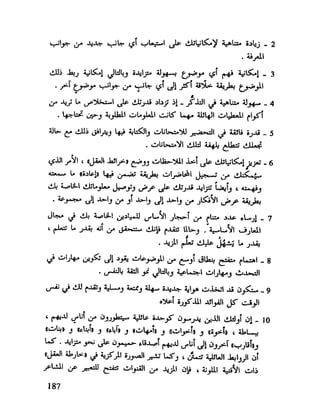 2 - زيادة متناهية لإمكانياتك على استيعاب أي جانب جديد من جوانب
المعرفة .
3 - إمكانية فهم أي موضوع بسهولة متزايدة وبالتالي إمكانية ربط ذلك
الموضوع بطريقة خلاقة أكثر إلى أي جانب من جوانب موضوع آخر .
4 - سهولة متناهية في التذكر - إذ تزداد قدرتك على استخلاص ما تريد من
أكوام المعطيات الهائلة مهما كانت المعلومات المطلوبة وحين تحتاجها .
5 - قدرة فائقة في التحضير للامتحانات والكتابة فيها ويترافق ذلك مع حالة
تجعلك تتطلع بلهفة لتلك الامتحانات .
6 - تعزيز إمكانياتك على أخذ الملاحظات ووضع «خرائط العقل» ، الأمر الذي
سيمكنك من تسجيل المحاضرات بطريقة تضمن فيها «إعادة» ما سمعته
وفهمته ، وأيضاً تتزايد قدرتك على عرض وتوصيل معلوماتك الخاصة بك
بطريقة عرض الأفكار من واحد إلى واحد أو من واحد إلى مجموعة .
7 - إرساء عدد متنام من أحجار الأساس للميادين الخاصة بك في مجال
المعارف الأساسية . وحالما تتقدم فإنك ستتحقق من أنه بقدر ما تتعلم ،
بقدر ما يَسْهُلُ عليك تعلُّم المزيد .
8 - اهتمام متفتح بنطاق أوسع من الموضوعات يقود إلى تكوين مهارات في
التحدث ومهارات اجتماعية وبالتالي نمو الثقة بالنفس .
9 - ستكون قد اتخذت هواية جديدة سهلة وممتعة ومسلية وتقدم لك في نفس
الوقت كل الفوائد المذكورة أعلاه
10 - إن أولئك الذين يدرسون كوحدة عائلية سيتطورون من أناس لديهم ،
ببساطة ، «أخوة» و«أخوات» و «أمهات» و «آباء» و «أبناء» و «بنات»
و«أقارب» وآخرون إلى أناس لديهم أصدقاء حميمون على نحو متزايد . كما
أن الروابط العائلية تتمتَّن ، وكما تشير الصورة المركزية في «خارطة العقل»
ذات الأقنية الملونة ، فإن المزيد من القنوات تتفتح للتعبير عن المشاعر
187